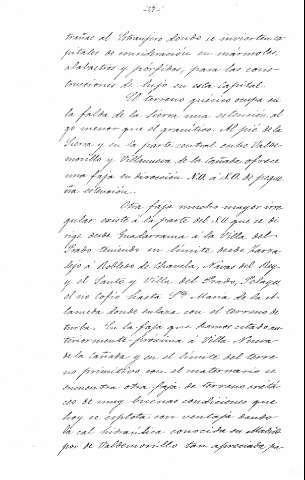 -37-
trañas al Extranjero donde se invierten ca
pitales de consideración en mármoles,
alabastros y pórfidos, para las cons-
trucciones de lujo en esta Capital.
El terreno que ocupa en
la falda de la Sierra una extensión al
go menor que el granítico. Al pié de la
Sierra y en la parte central entre Valde-
morillo y Villanueva de la Cañada ofrece
una faja en dirección N.O. á S.O. de peque
ña extensión.
Otra faja mucho mayor irre
gular existe á la parte del S.O. que se di-
rige desde Guadarrama á la Villa del
Prado teniendo su límite desde Zarza
lejo á Robledo de Chavela, Navas del Rey
y el Santo y Villa del Prado, Pelayo
el río Cofio hasta Sta. Maria de la Al-
ameda donde enlaza con el terreno de
turba. En la faja que hemos citado an
teriormente próxima á Villa Nueva
de la Cañada y en el límite del terre
no primitivo con el cuaternario se
encuentra otra faja de terreno cretá
ceo de muy buenas condiciones que
hoy se explota con ventaja dando
la cal hidráulica conocida en Madrid
por de Valdemorillo tan apreciada pa-